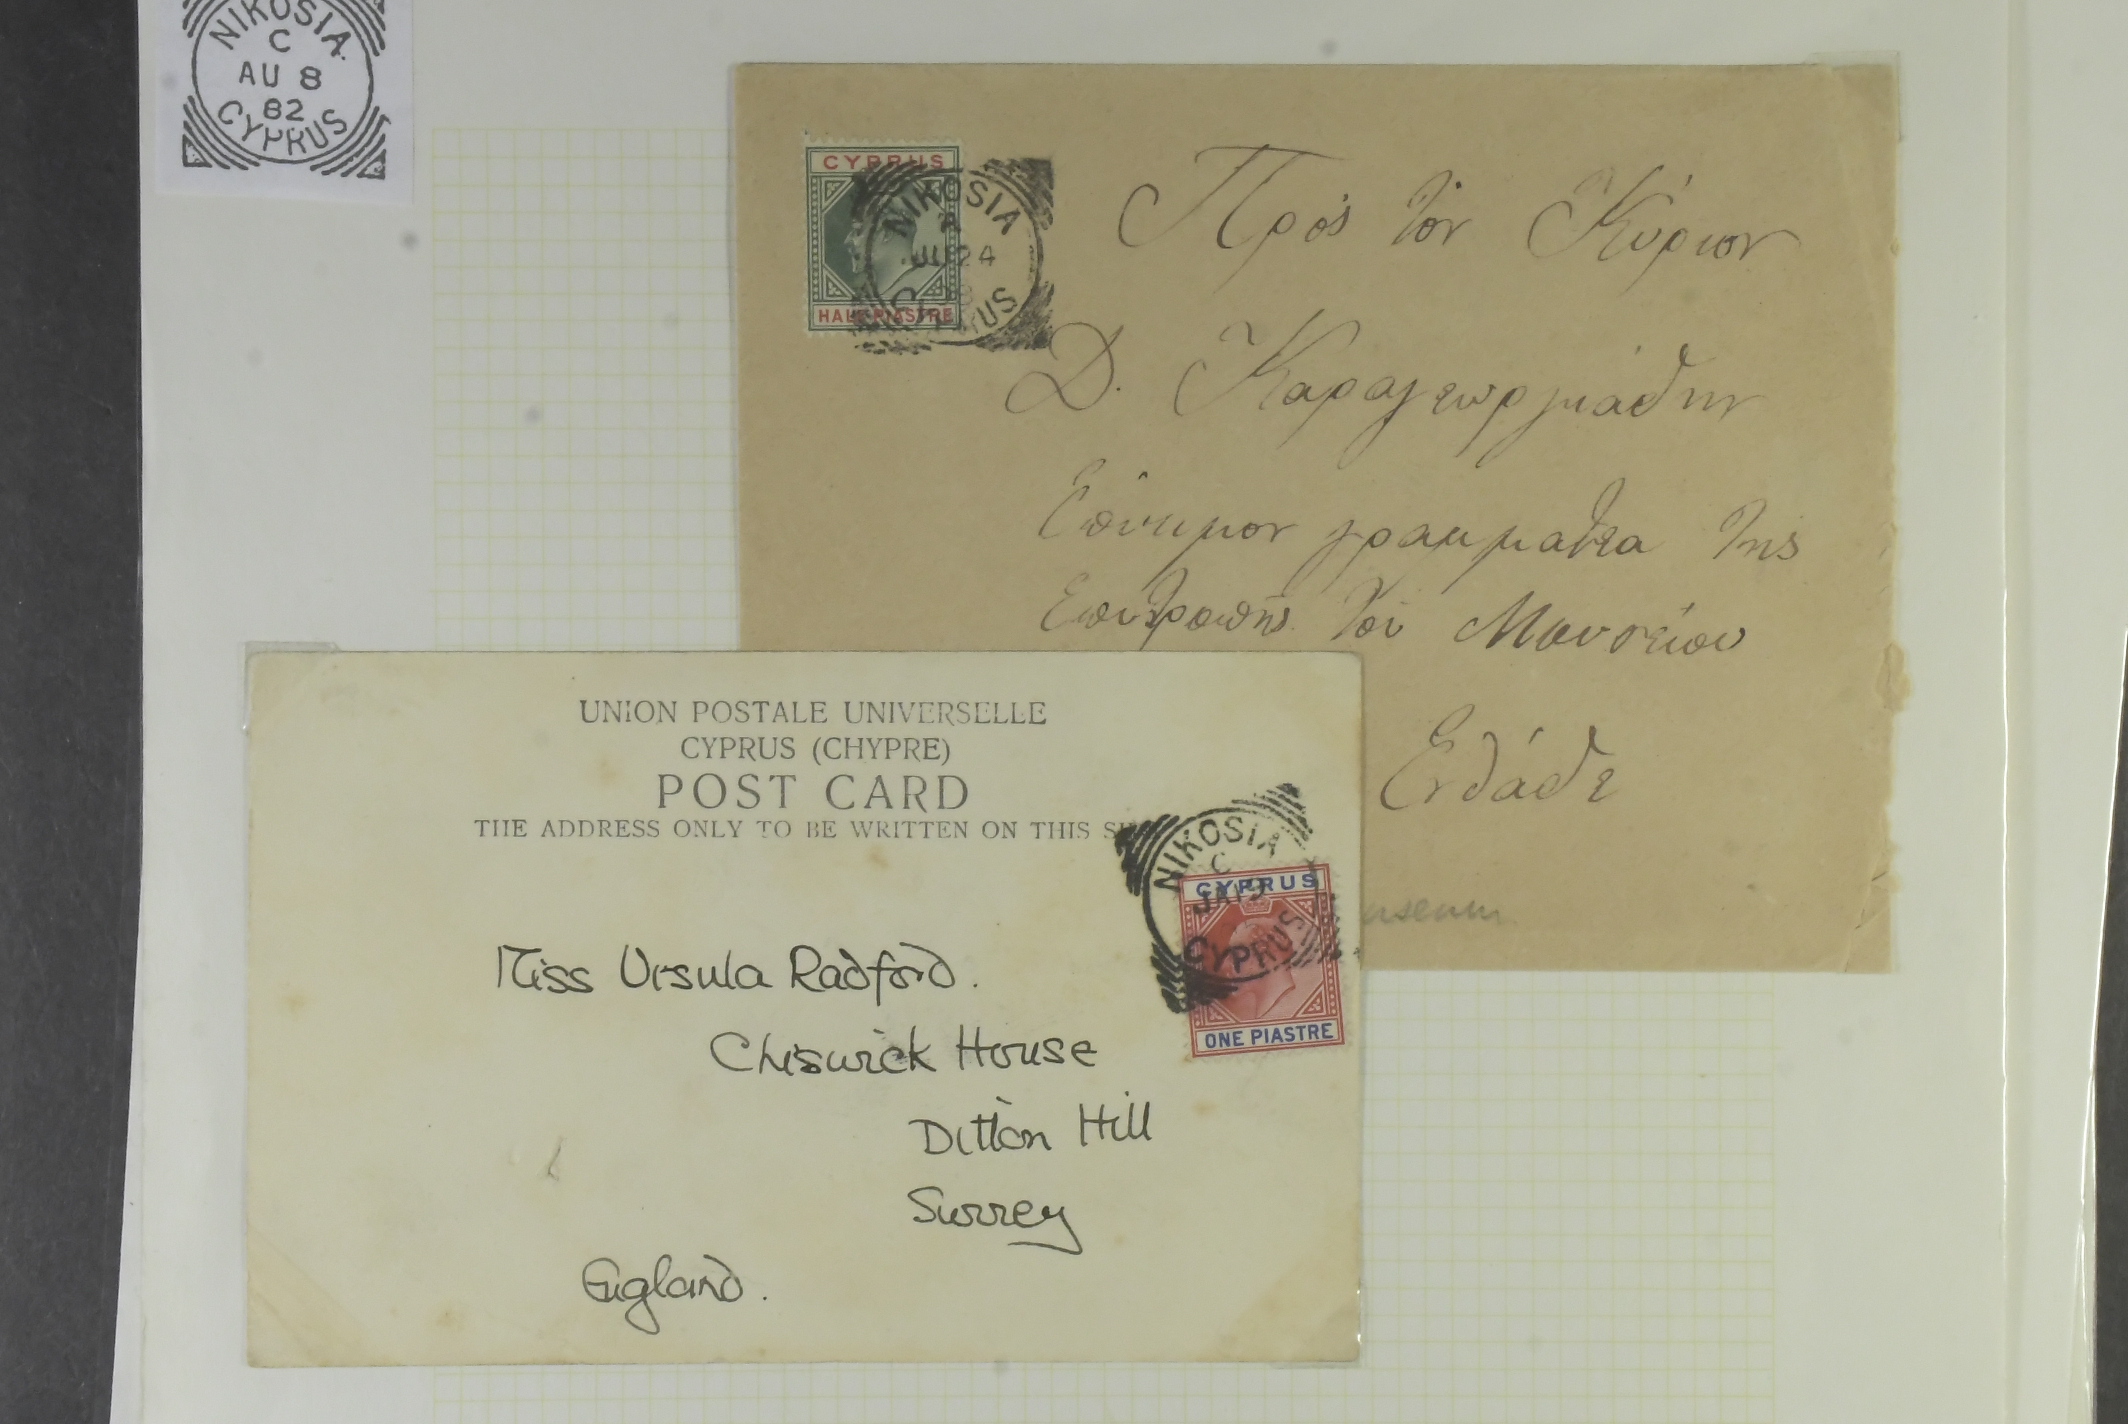 NIKOSIA
C
AU 8
82
CYPRUS
CYPRUS
HALF PIASTRE
NIKOSIA
JU 24
CYPRUS
Πρὸς τὸν Κύριον
Δ. Καραγεωργιάδην
Επίτιμον γραμματέα της
Επιτροπής τού Μουσείου
Ενθάδε
UNION POSTALE UNIVERSELLE
CYPRUS (CHYPRE)
POST CARD
THE ADDRESS ONLY TO BE WRITTEN ON THIS
NIKOSIA
C
CYPRUS
CYPRUS
ONE PIASTRE
Miss Ursula Radford.
Chiswick House
Ditton Hill
Surrey
England.